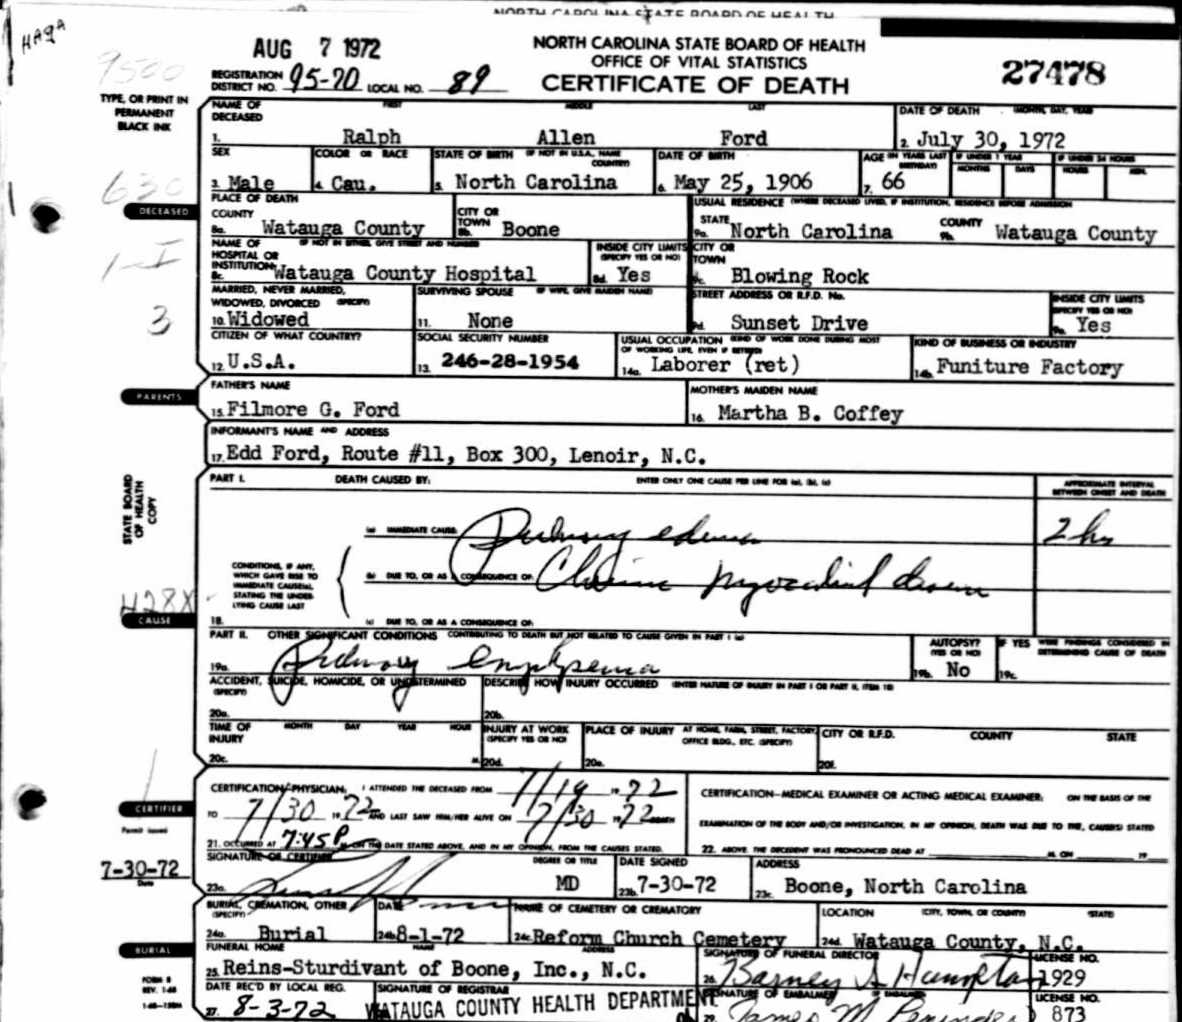 NORTH CAROLINA STATE BOARD OF HEALTH
HAGA
AUG 7 1972
NORTH CAROLINA STATE BOARD OF HEALTH
OFFICE OF VITAL STATISTICS
CERTIFICATE OF DEATH
27478
9500
REGISTRATION DISTRICT NO. 95-70 LOCAL NO. 89
TYPE, OR PRINT IN
PERMANENT
BLACK INK
NAME OF DECEASED FIRST MIDDLE LAST DATE OF DEATH (MONTH, DAY, YEAR)
1. Ralph Allen Ford 2. July 30, 1972
SEX COLOR OR RACE STATE OF BIRTH (IF NOT IN U.S.A., NAME COUNTRY) DATE OF BIRTH AGE (IN YEARS LAST BIRTHDAY) IF UNDER 1 YEAR IF UNDER 24 HOURS
MONTHS DAYS HOURS MIN.
3. Male 4. Cau. 5. North Carolina 6. May 25, 1906 7. 66
630
DECEASED
PLACE OF DEATH USUAL RESIDENCE (WHERE DECEASED LIVED, IF INSTITUTION, RESIDENCE BEFORE ADMISSION)
COUNTY CITY OR TOWN STATE COUNTY
8a. Watauga County 8b. Boone 9a. North Carolina 9b. Watauga County
1-I
NAME OF HOSPITAL OR INSTITUTION: (IF NOT IN EITHER, GIVE STREET AND NUMBER) INSIDE CITY LIMITS (SPECIFY YES OR NO) CITY OR TOWN
8c. Watauga County Hospital 8d. Yes 9c. Blowing Rock
MARRIED, NEVER MARRIED, WIDOWED, DIVORCED (SPECIFY) SURVIVING SPOUSE (IF WIFE, GIVE MAIDEN NAME) STREET ADDRESS OR R.F.D. No. INSIDE CITY LIMITS (SPECIFY YES OR NO)
3
10. Widowed 11. None 9d. Sunset Drive 9e. Yes
CITIZEN OF WHAT COUNTRY? SOCIAL SECURITY NUMBER USUAL OCCUPATION (KIND OF WORK DONE DURING MOST OF WORKING LIFE, EVEN IF RETIRED) KIND OF BUSINESS OR INDUSTRY
12. U.S.A. 13. 246-28-1954 14a. Laborer (ret) 14b. Funiture Factory
PARENTS
FATHER'S NAME MOTHER'S MAIDEN NAME
15. Filmore G. Ford 16. Martha B. Coffey
INFORMANT'S NAME AND ADDRESS
17. Edd Ford, Route #11, Box 300, Lenoir, N.C.
STATE BOARD
OF HEALTH
COPY
PART I. DEATH CAUSED BY: ENTER ONLY ONE CAUSE PER LINE FOR (a), (b), (c) APPROXIMATE INTERVAL BETWEEN ONSET AND DEATH
(a) IMMEDIATE CAUSE: Pulmonary edema 2 hrs
CONDITIONS, IF ANY,
WHICH GAVE RISE TO
IMMEDIATE CAUSE(a),
STATING THE UNDER-
LYING CAUSE LAST
(b) DUE TO, OR AS A CONSEQUENCE OF: Chronic myocardial disease
428X
CAUSE
18. (c) DUE TO, OR AS A CONSEQUENCE OF:
PART II. OTHER SIGNIFICANT CONDITIONS CONTRIBUTING TO DEATH BUT NOT RELATED TO CAUSE GIVEN IN PART I (a) AUTOPSY? (YES OR NO) IF YES WERE FINDINGS CONSIDERED IN DETERMINING CAUSE OF DEATH
19a. Pulmonary emphysema 19b. No 19c.
ACCIDENT, SUICIDE, HOMICIDE, OR UNDETERMINED (SPECIFY) DESCRIBE HOW INJURY OCCURRED (ENTER NATURE OF INJURY IN PART I OR PART II, ITEM 18)
20a. 20b.
TIME OF INJURY MONTH DAY YEAR HOUR INJURY AT WORK (SPECIFY YES OR NO) PLACE OF INJURY AT HOME, FARM, STREET, FACTORY, OFFICE BLDG., ETC. (SPECIFY) CITY OR R.F.D. COUNTY STATE
20c. M. 20d. 20e. 20f.
CERTIFIER
CERTIFICATION-PHYSICIAN: I ATTENDED THE DECEASED FROM 7/19 1972
TO 7/30 1972 AND LAST SAW HIM/HER ALIVE ON 7/30 1972 DEATH
21. OCCURRED AT 7:45 P M. ON THE DATE STATED ABOVE, AND IN MY OPINION, FROM THE CAUSES STATED.
CERTIFICATION-MEDICAL EXAMINER OR ACTING MEDICAL EXAMINER: ON THE BASIS OF THE
EXAMINATION OF THE BODY AND/OR INVESTIGATION, IN MY OPINION, DEATH WAS DUE TO THE, CAUSE(S) STATED
22. ABOVE. THE DECEDENT WAS PRONOUNCED DEAD AT M. ON 19
Permit issued
7-30-72
Date
SIGNATURE OF CERTIFIER DEGREE OR TITLE DATE SIGNED ADDRESS
23a. MD 23b. 7-30-72 23c. Boone, North Carolina
BURIAL, CREMATION, OTHER (SPECIFY) DATE NAME OF CEMETERY OR CREMATORY LOCATION (CITY, TOWN, OR COUNTY) (STATE)
24a. Burial 24b. 8-1-72 24c. Reform Church Cemetery 24d. Watauga County, N.C.
BURIAL
FUNERAL HOME NAME ADDRESS SIGNATURE OF FUNERAL DIRECTOR LICENSE NO.
25. Reins-Sturdivant of Boone, Inc., N.C. 26. Barney S Hampton 1929
FORM 8
REV. 1-68
DATE REC'D BY LOCAL REG. SIGNATURE OF REGISTRAR SIGNATURE OF EMBALMER LICENSE NO.
27. 8-3-72 WATAUGA COUNTY HEALTH DEPARTMENT 29. James M 873